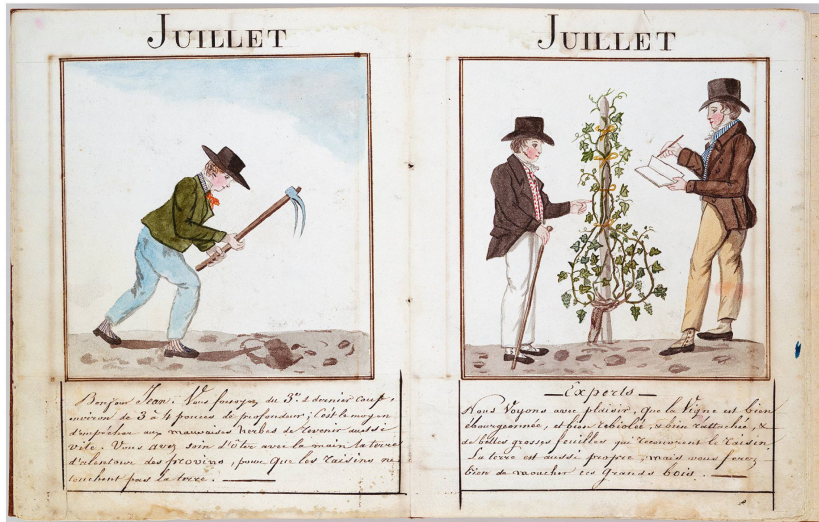 JUILLET
Bonjour Jean. Vous fossoyez du 3e. & dernier coup,
environ de 3 à 4 pouces de profondeur; C'est le moyen
d'empêcher aux mauvaises herbes de revenir aussi
vite. Vous avez soin d'ôter avec la main la terre
d'alentour des provins, pour que les raisins ne
touchent pas la terre.
JUILLET
Experts
Nous Voyons avec plaisir, que la Vigne est bien
ébourgeonnée, et bien rebiolée, & bien rattachée, &
de belles grosses feuilles qui recouvrent le raisin.
La terre est aussi propre, mais vous ferez
bien de moucher ces grands bois.